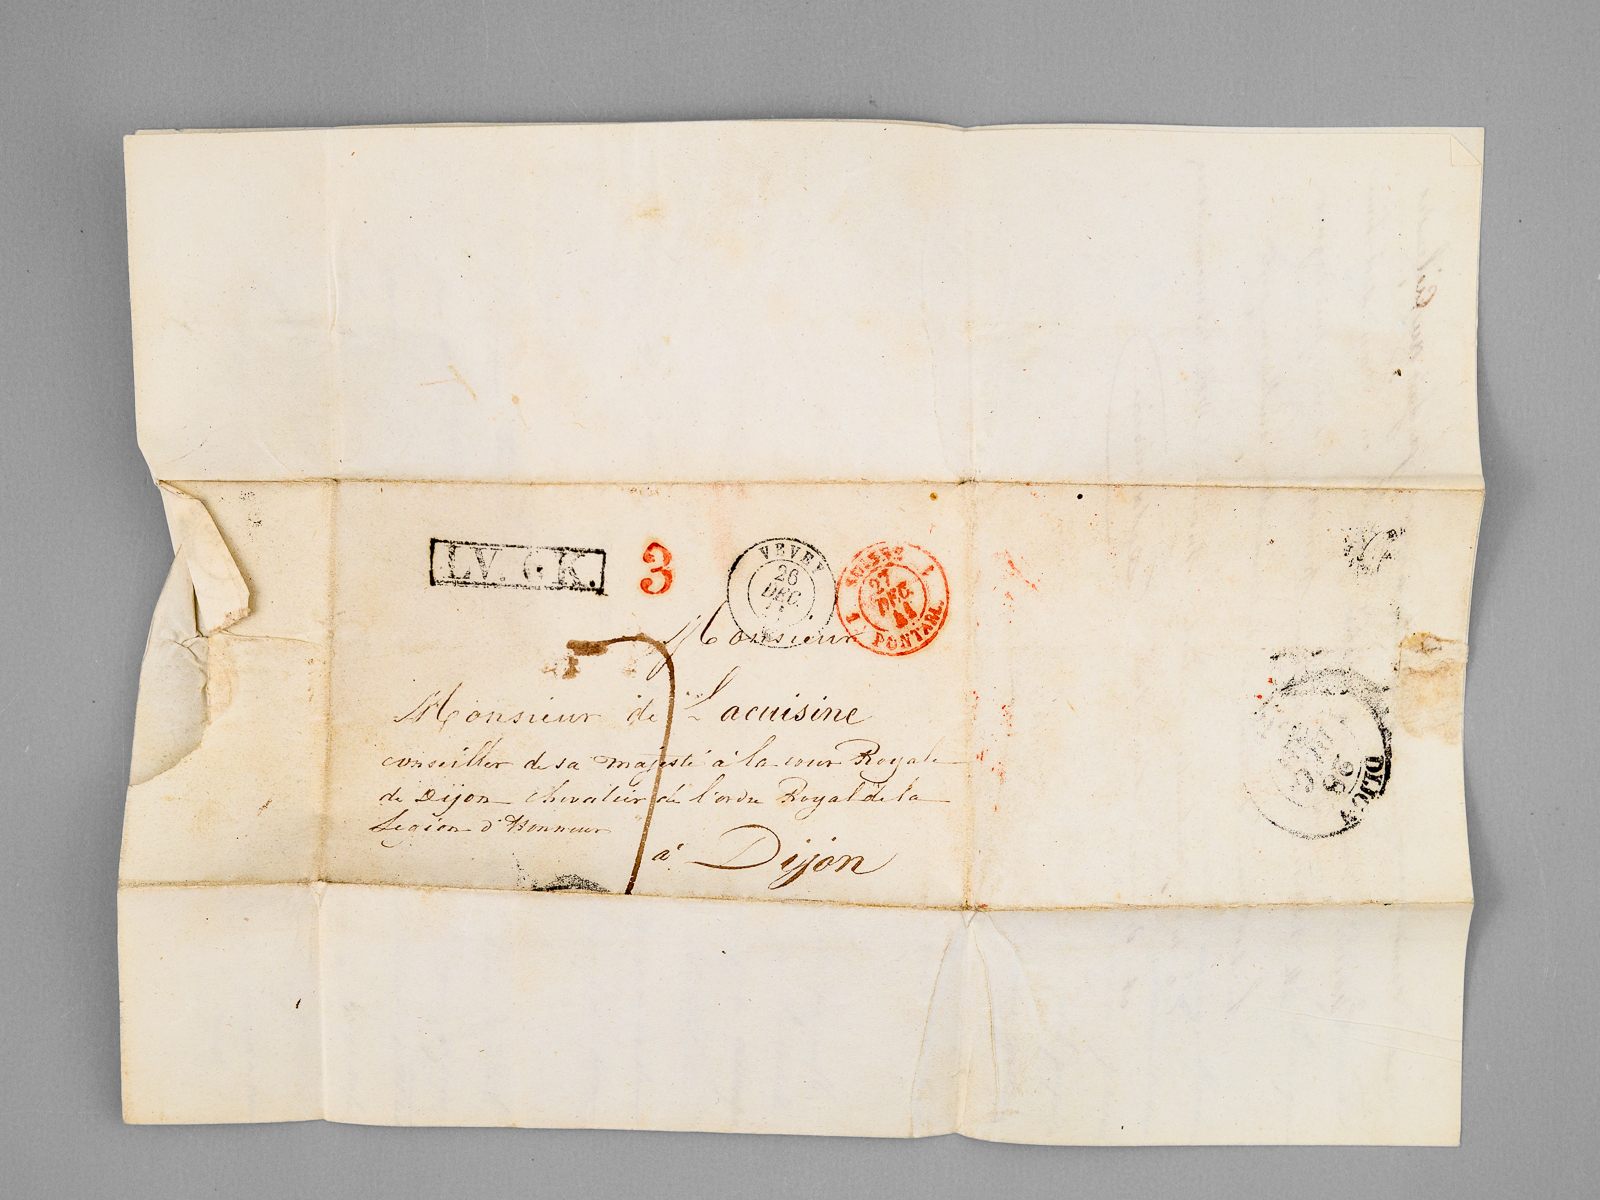 LV. G. K.
3
VEVEY
26
DEC.
SUISSE
1
27
DEC.
41
1
PONTARL.
7
Monsieur
Monsieur de Lacuisine
conseiller de sa majesté à la cour Royale
de Dijon chevalier de l'ordre Royal de la
Legion d'Honneur
à Dijon
DIJON